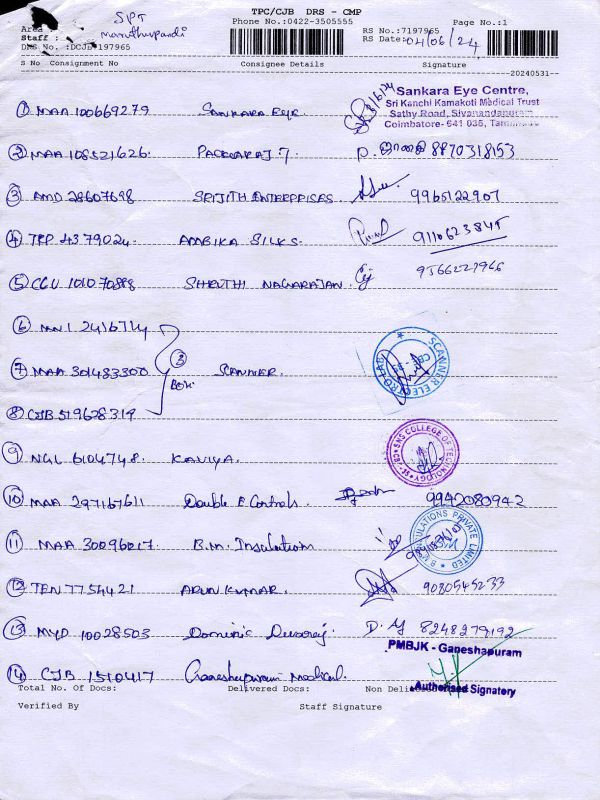 TPC/CJB DRS - CMP
Phone No.:0422-3505555 Page No.:1
Area SPT
Staff : Maruthupandi
RS No.:7197965
RS Date: 04/06/24
DRS No. :DCJB-197965
S No Consignment No Consignee Details Signature
20240531
① MAA 100669279 SANKARA EYE
Sankara Eye Centre,
Sri Kanchi Kamakoti Medical Trust
Sathy Road, Sivanandapuram
Coimbatore- 641 035, Tamilnadu
② MAA 108521626. 8870318153
③ AMD 28607698 SRIJITH ENTERPRISES. 9965122907
④ TRP 4379024. AMBIKA SILKS. 9110623845
⑤ CCU 101070888 SHRUTHI NAGARAJAN. 9566227966
⑥ MNI 2416714
⑦ MAA 301483300 ③ Box SCANNER. SCANNER ELECTRO LAB CBE - 35
⑧ CJB 519628319
⑨ NGL 6104748. KAVIYA. SNS COLLEGE OF TECHNOLOGY
⑩ MAA 297167611 Double E Controls. 9942080942
⑪ MAA 30096017 B.M. Insulation B.M. INSULATIONS PRIVATE LIMITED
⑫ TEN 7754421 ARUN KUMAR. 9080545233
⑬ MYD 10028503 Dominic Devaraj D. 8248279192
PMBJK - Ganeshapuram
⑭ CJB 1510417 Ganeshapuram Medical.
Authorised Signatory
Total No. Of Docs: Delivered Docs: Non Deli
Verified By Staff Signature